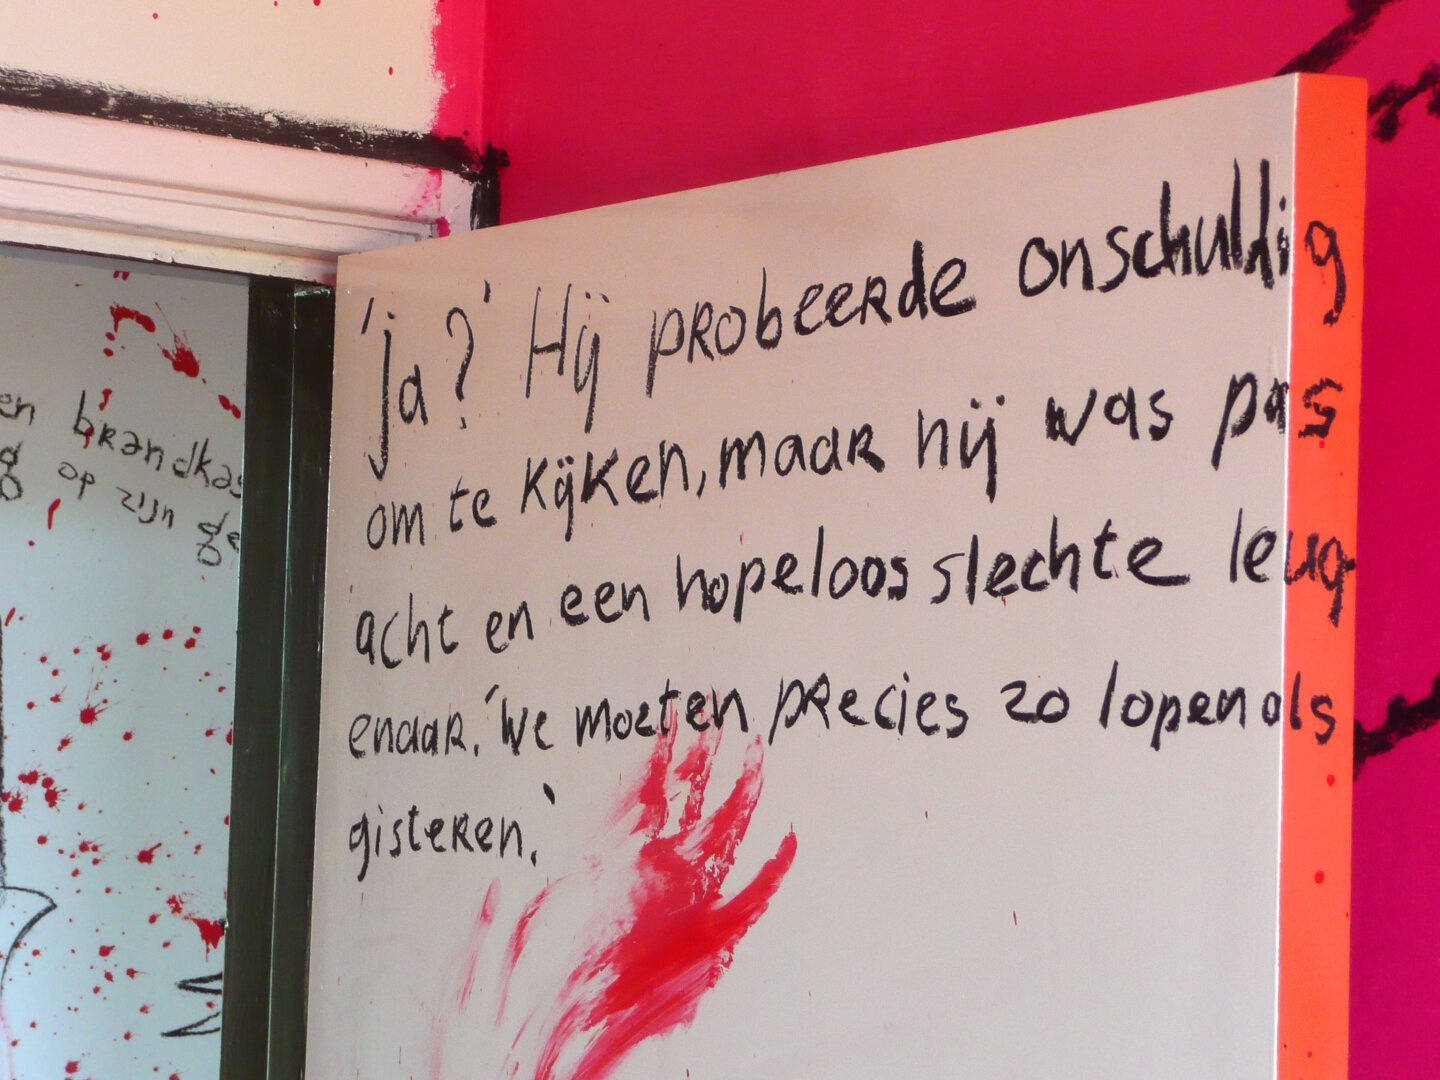 en brandkas
op zijn ge
'ja?' Hij probeerde onschuldig
om te kijken, maar hij was pas
acht en een hopeloos slechte leug
enaar. 'We moeten precies zo lopen als
gisteren.'